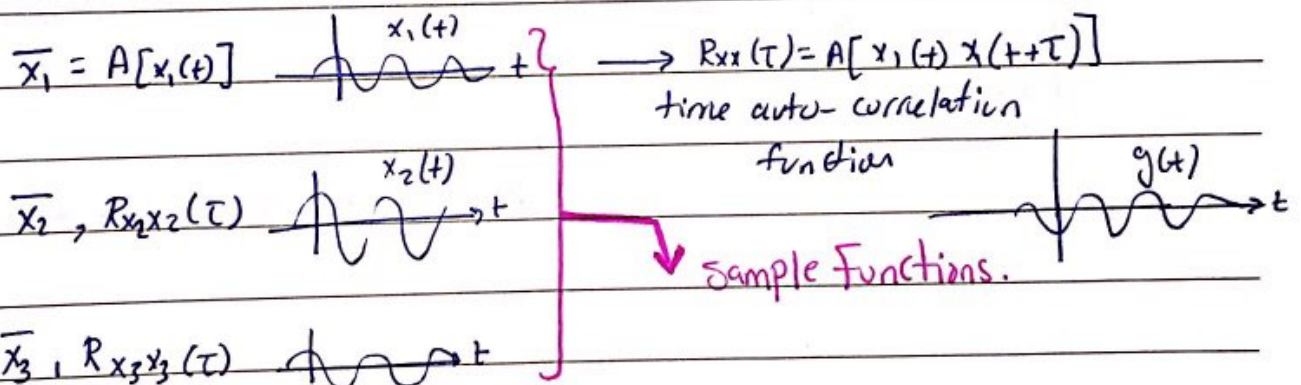 x̄₁ = A[x₁(t)] x₁(t) t → Rxx(τ) = A[x₁(t) x(t+τ)]
time auto-correlation
function
x₂(t) g(t)
x̄₂, Rx₂x₂(τ) t t
Sample Functions.
x̄₃, Rx₃x₃(τ) t